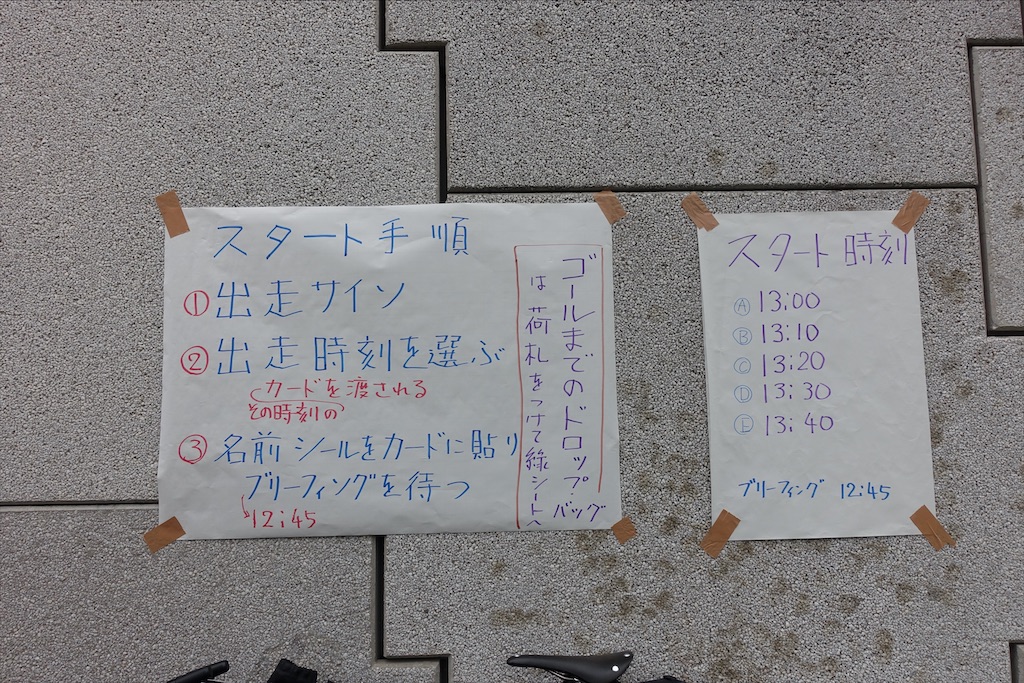 スタート手順
① 出走サイン
② 出走時刻を選ぶ
カードを渡される
その時刻の
③ 名前シールをカードに貼り
ブリーフィングを待つ
12:45
ゴールまでのドロップ・バッグ
は荷札をつけて緑シートへ
スタート時刻
Ⓐ 13:00
Ⓑ 13:10
Ⓒ 13:20
Ⓓ 13:30
Ⓔ 13:40
ブリーフィング 12:45